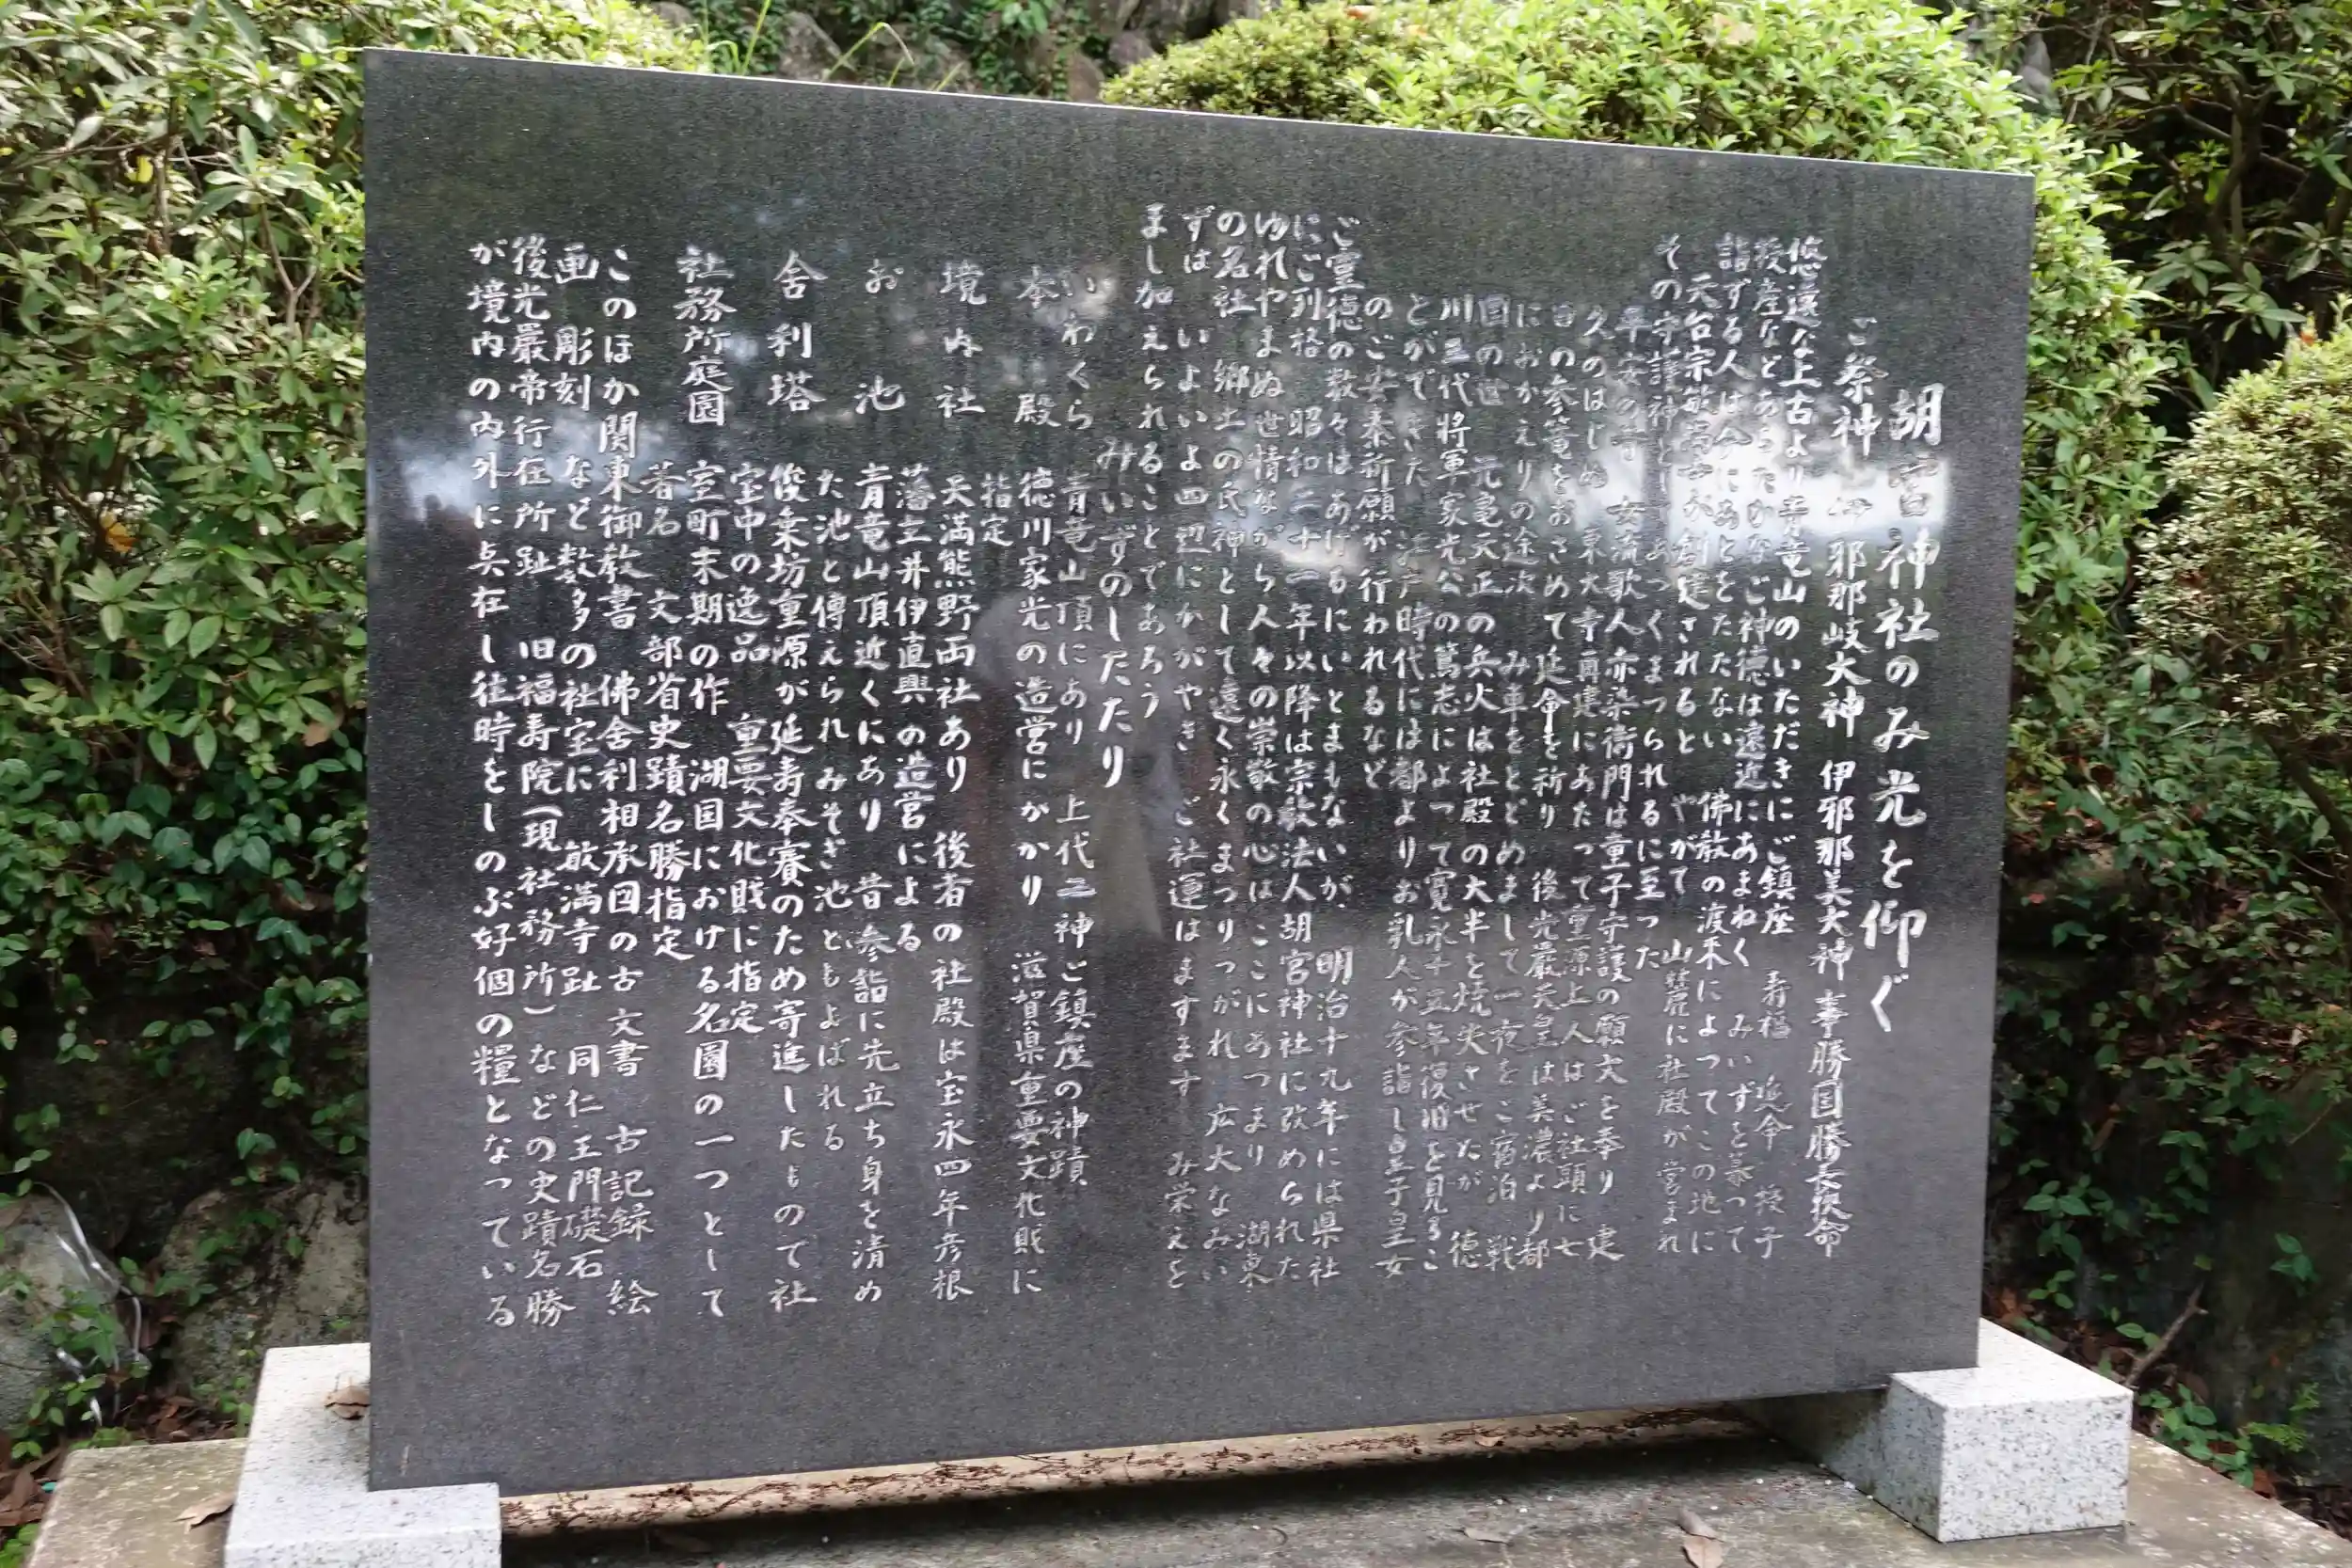 胡宮神社のみ光を仰ぐ
ご祭神 伊邪那岐大神 伊邪那美大神 事勝国勝長狭命
悠遠な上古より青竜山のいただきにご鎮座 寿福 延命 授子
授産などあらたかなご神徳は遠近にあまねく みいずを慕つて
詣ずる人は今にあとをたたない 佛教の渡来によつてこの地に
天台宗敏満寺が創建されると やがて 山麓に社殿が営まれ
その守護神としてあつくまつられるに至った
平安の 女流歌人赤染衛門は童子守護の願文を奉り 建
久のはじめ 東大寺再建にあたって重源上人はご社頭に七
日の参篭をおさめて延命を祈り 後光厳天皇は美濃より都
におかえりの途次 み車をとどめまして一夜をご宿泊 戦
国の世 元亀天正の兵火は社殿の大半を焼失させたが 徳
川三代将軍家光公の篤志によって寛永十五年復旧を見るこ
とができた 江戸時代には都よりお乳人が参詣し皇子皇女
のご安泰祈願が行われるなど
ご霊徳の数々はあげるにいとまもないが、明治十九年には県社
にご列格 昭和二十一年以降は宗教法人胡宮神社に改められた
ゆれやまぬ世情ながら人々の崇敬の心はここにあつまり 湖東
の名社 郷土の氏神として遠く永くまつりつがれ 広大なみい
ずは いよいよ四辺にかがやき ご社運はますます み栄えを
まし加えられることであろう
みいずのしたたり
いわくら 青竜山頂にあり 上代二神ご鎮座の神蹟
本殿 徳川家光の造営にかかり 滋賀県重要文化財に
指定
境内社 天満熊野両社あり 後者の社殿は宝永四年彦根
藩主井伊直興の造営による
お池 青竜山頂近くにあり 昔参詣に先立ち身を清め
た池と傳えられみそぎ池ともよばれる
舎利塔 俊乗坊重源が延寿奉賽のため寄進したもので社
宝中の逸品 重要文化財に指定
社務所庭園 室町末期の作 湖国における名園の一つとして
著名 文部省史蹟名勝指定
このほか関東御教書 佛舎利相承図の古文書 古記録 絵
画 彫刻 など数多の社宝に 敏満寺趾 同仁王門礎石
後光厳帝行在所趾 旧福寿院(現社務所)などの史蹟名勝
が境内の内外に点在し往時をしのぶ好個の糧となっている